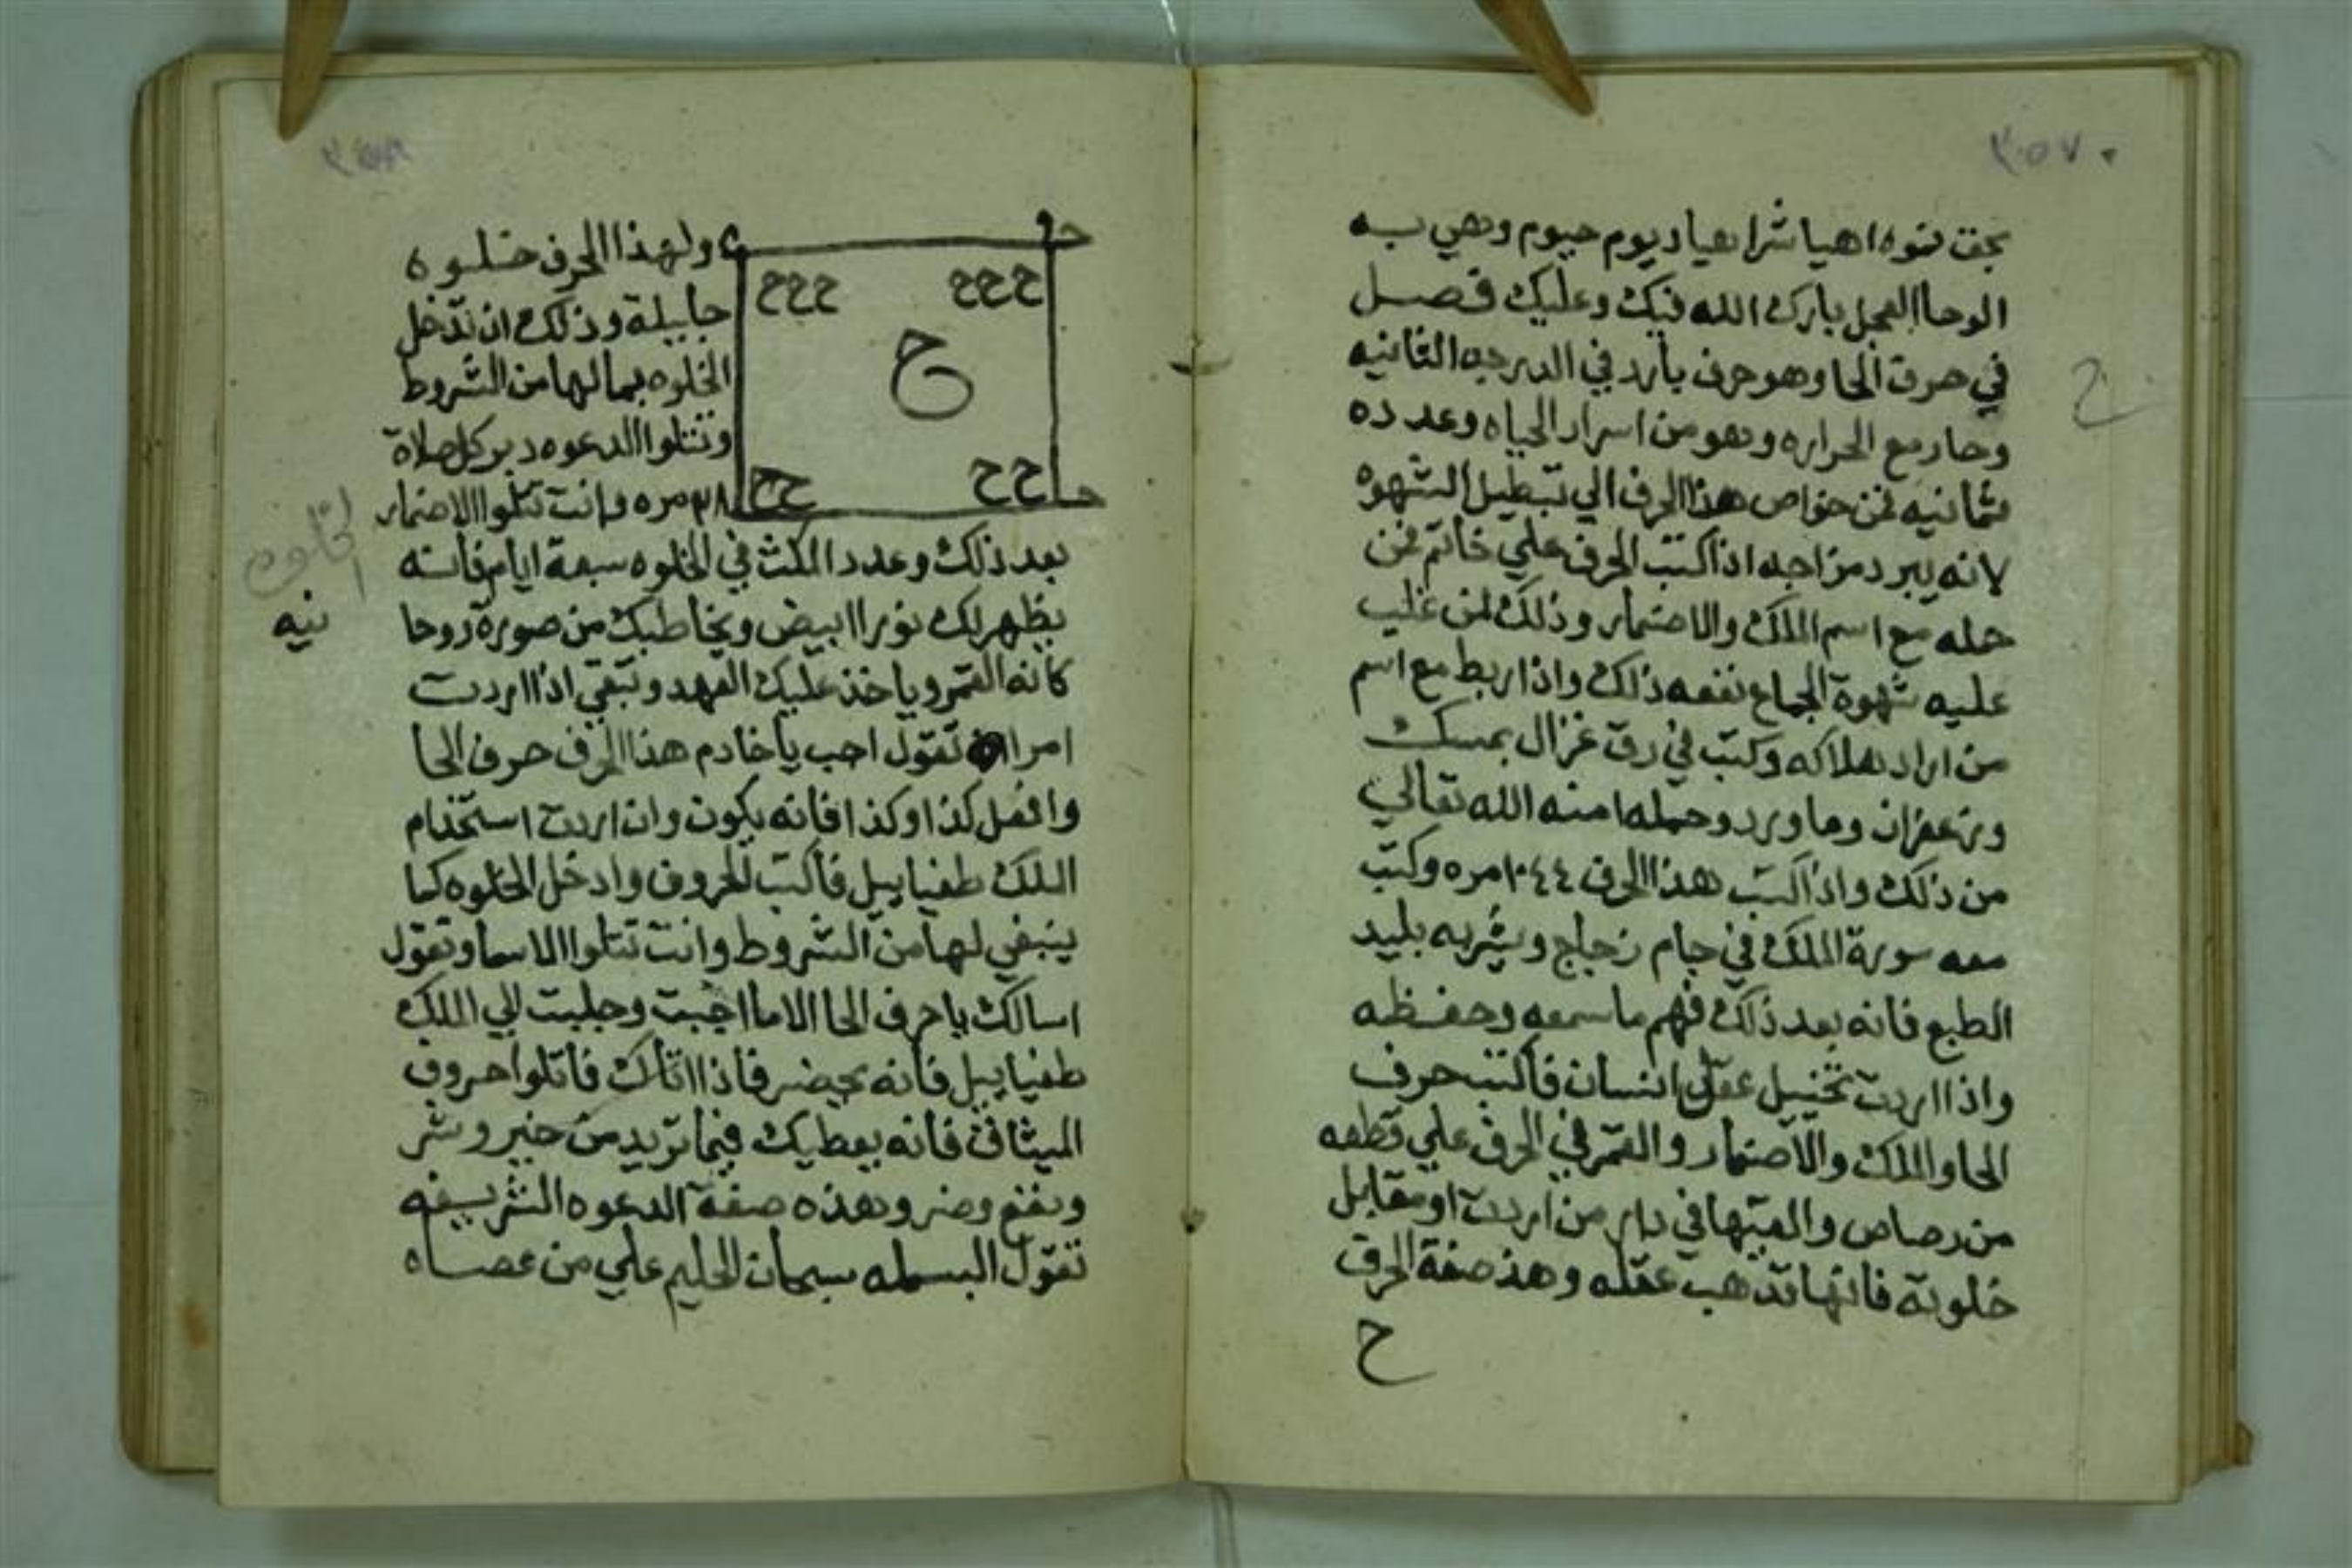 ٣٥٧
بحق نموه اهيا شراهيا ديوم حيوم وهي به
الوحا العجل بارك الله فيك وعليك فصل
في حرف الحا وهو حرف بارد في الدرجه الثانيه
وحار مع الحراره وهو من اسرار الحياه وعدده
ثمانيه فمن خواص هذا الحرف الي تبطيل الشهوه
لانه يبرد مزاجه اذا كتب الحرف علي خاتم فمن
حمله مع اسم الملك والاضمار وذلك لمن غلب
عليه شهوة الجماع نفعه ذلك واذا ربط مع اسم
من اراد هلاكه وكتب في رق غزال بمسك
وزعفران وماورد وحمله امنه الله تعالي
من ذلك واذا كتب هذا الحرف ١٠٤٤ مره وكتب
معه سورة الملك في جام زجاج ويشربه بليد
الطبع فانه بعد ذلك فهم ما سمعه وحفظه
واذا اردت تخييل عقل انسان فاكتب حرف
الحا والملك والاضمار والقمر في الحرف علي قطعه
من رصاص والقيتها في دار من اردت او مقابل
خلوته فانها تذهب عقله وهذ صفة الحرف
ح
ح
ولهذا الحرف خلوه
جليلة وذلك ان تدخل
الخلوه بمالها من الشروط
وتتلوا الدعوه دبر كل صلاة
٣٨ مره وانت تتلوا الاضمار
ححح ححح
ح
حح حح
بعد ذلك وعدد المكث في الخلوه سبعة ايام فانه
يظهر لك نورا ابيض ويخاطبك من صورة روحا
نيه
الخلوه
كانه القمر وياخذ عليك العهد وتبقي اذا اردت
امرا تقول اجب يا خادم هذا الحرف حرف الحا
وافعل كذا وكذا فانه يكون وان اردت استخدام
الملك طفياييل فاكتب الحروف وادخل الخلوه كما
ينبغي لها من الشروط وانت تتلوا الاسما وتقول
اسالك يا حرف الحا الاما اجبت وجلبت لي الملك
طفياييل فانه يحضر فاذا اتاك فاتلوا حروف
الميثاق فانه يعطيك فيما تريد من خير وشر
ونفع وضر وهذه صفة الدعوه الشريفه
تقول البسمله سبحان الحليم علي من عصاه